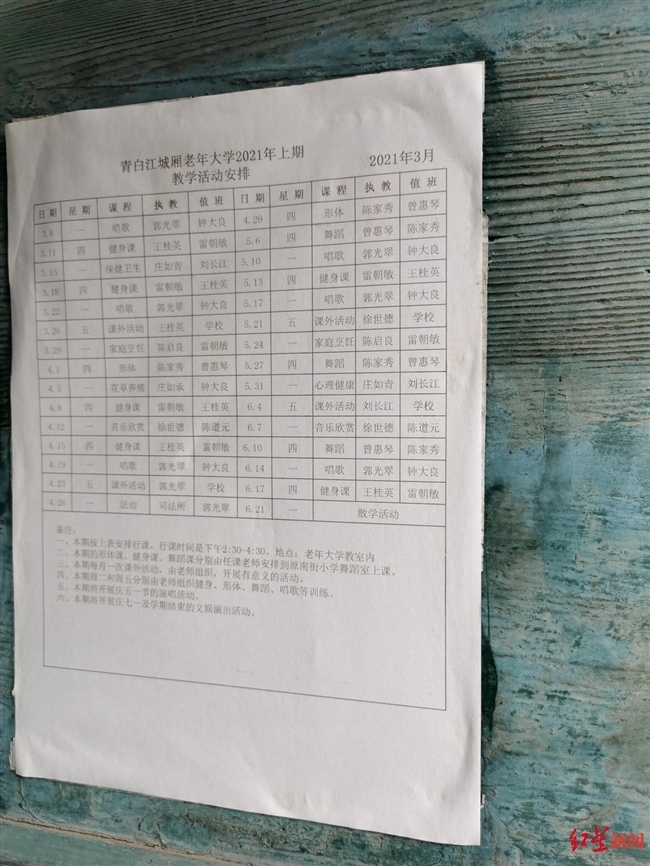 青白江城厢老年大学2021年上期
教学活动安排
2021年3月
日期 星期 课程 执教 值班 日期 星期 课程 执教 值班
3.8 一 唱歌 郭光翠 钟大良 4.29 四 形体 陈家秀 曾惠琴
3.11 四 健身课 王桂英 雷朝敏 5.6 四 舞蹈 曾惠琴 陈家秀
3.15 一 保健卫生 庄如青 刘长江 5.10 一 唱歌 郭光翠 钟大良
3.18 四 健身课 雷朝敏 王桂英 5.13 四 健身课 雷朝敏 王桂英
3.22 一 唱歌 郭光翠 钟大良 5.17 一 唱歌 郭光翠 钟大良
3.26 五 课外活动 王桂英 学校 5.21 五 课外活动 徐世德 学校
3.29 一 家庭烹饪 陈启良 雷朝敏 5.24 一 家庭烹饪 陈启良 雷朝敏
4.1 四 形体 陈家秀 曾惠琴 5.27 四 舞蹈 陈家秀 曾惠琴
4.5 一 花草养殖 庄如承 钟大良 5.31 一 心理健康 庄如青 刘长江
4.8 四 健身课 雷朝敏 王桂英 6.4 五 课外活动 刘长江 学校
4.12 一 音乐欣赏 徐世德 陈道元 6.7 一 音乐欣赏 徐世德 陈道元
4.15 四 健身课 王桂英 雷朝敏 6.10 四 舞蹈 曾惠琴 陈家秀
4.19 一 唱歌 郭光翠 钟大良 6.14 一 唱歌 郭光翠 钟大良
4.23 五 课外活动 郭光翠 学校 6.17 四 健身课 王桂英 雷朝敏
4.26 一 法治 司法所 郭光翠 6.21 一 散学活动
备注：
一、本期按上表安排行课，行课时间是下午2:30-4:30，地点：老年大学教室内
二、本期的形体课、健身课、舞蹈课分别由任课老师安排到原南街小学舞蹈室上课。
三、本期每月一次课外活动，由老师组织，开展有意义的活动。
四、本期周二和周五分别由老师组织健身、形体、舞蹈、唱歌等训练。
五、本期将开展庆五一节的演唱活动。
六、本期将开展庆七一及学期结束的文娱演出活动。
红星新闻